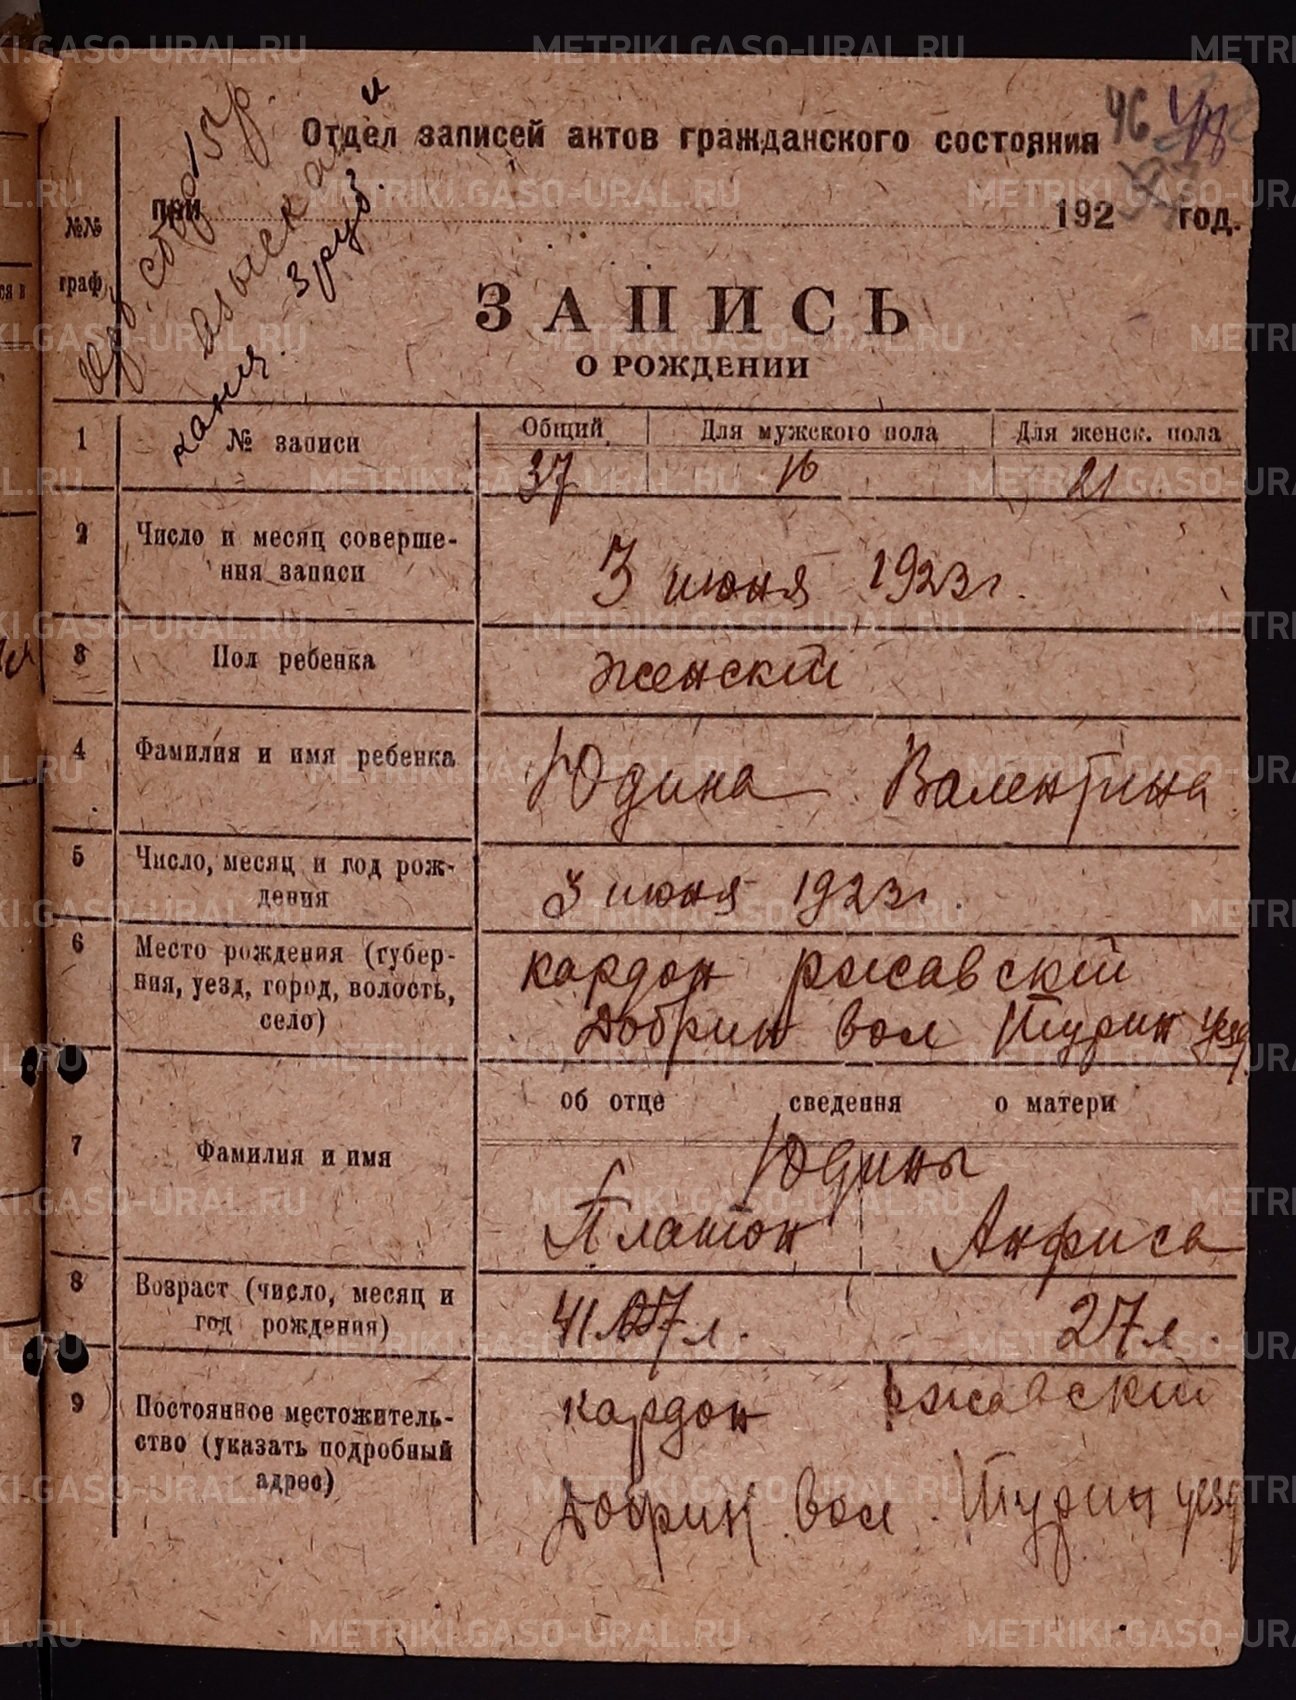 46
Отдел записей актов гражданского состояния
при 192 год.
сбора 15 р. и
взыска
ния. 3 руб.
№№ граф
ЗАПИСЬ
О РОЖДЕНИИ
1 № записи
Общий Для мужского пола Для женск. пола
37 16 21
2 Число и месяц соверше-
ния записи
3 июня 1923 г.
3 Пол ребенка
женскій
4 Фамилия и имя ребенка
Юдина Валентина
5 Число, месяц и год рож-
дения
3 июня 1923 г.
6 Место рождения (губер-
ния, уезд, город, волость,
село)
кардон ржавскій
Добрин вол Турин уезд
об отце сведения о матери
7 Фамилия и имя
Юдины
Платон Анфиса
8 Возраст (число, месяц и
год рождения)
41 27 л.
9 Постоянное местожитель-
ство (указать подробный
адрес)
кардон ржавскій
Добрин вол. Турин уезд
METRIKI.GASO-URAL.RU